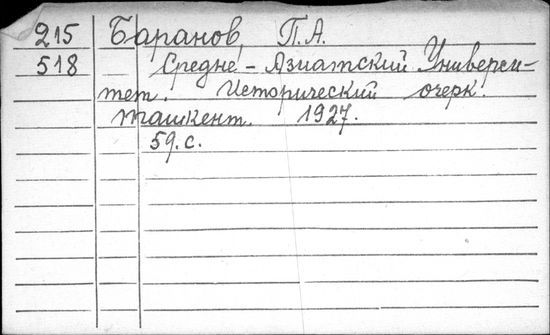 215 Баранов, П.А.
518 Средне-Азиатский Универси-
тет. Исторический очерк.
Ташкент. 1927.
59. с.